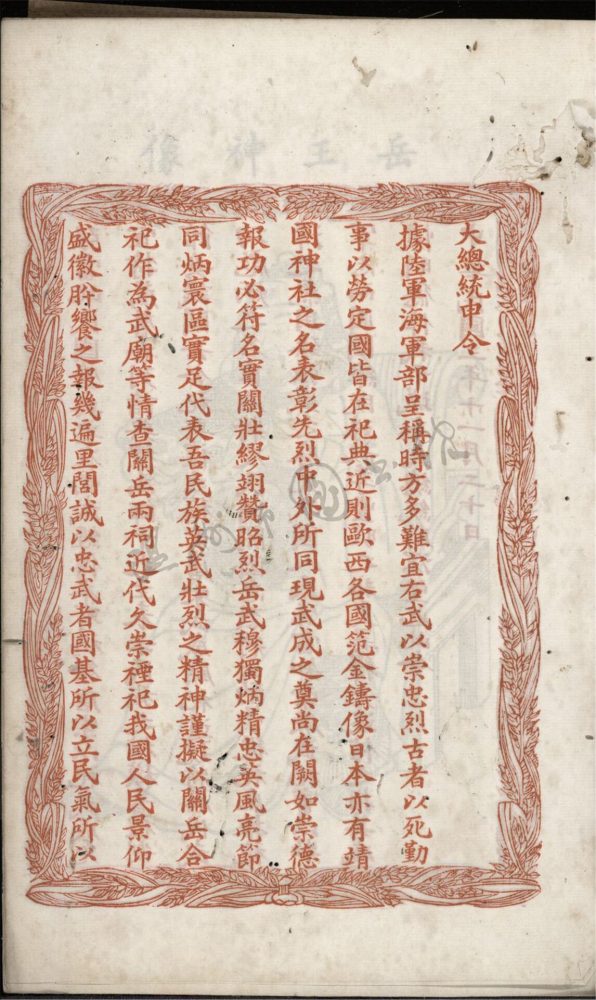 大總統申令
據陸軍海軍部呈稱時方多難宜右武以崇忠烈古者以死勤
事以勞定國皆在祀典近則歐西各國范金鑄像日本亦有靖
國神社之名表彰先烈中外所同現武成之奠尚在闕如崇德
報功必符名實關壯繆翊贊昭烈岳武穆獨炳精忠英風亮節
同炳寰區實足代表吾民族英武壯烈之精神謹擬以關岳合
祀作為武廟等情查關岳兩祠近代久崇禋祀我國人民景仰
盛徽肸饗之報幾遍里閭誠以忠武者國基所以立民氣所以
岳王神像
年十一月二十日